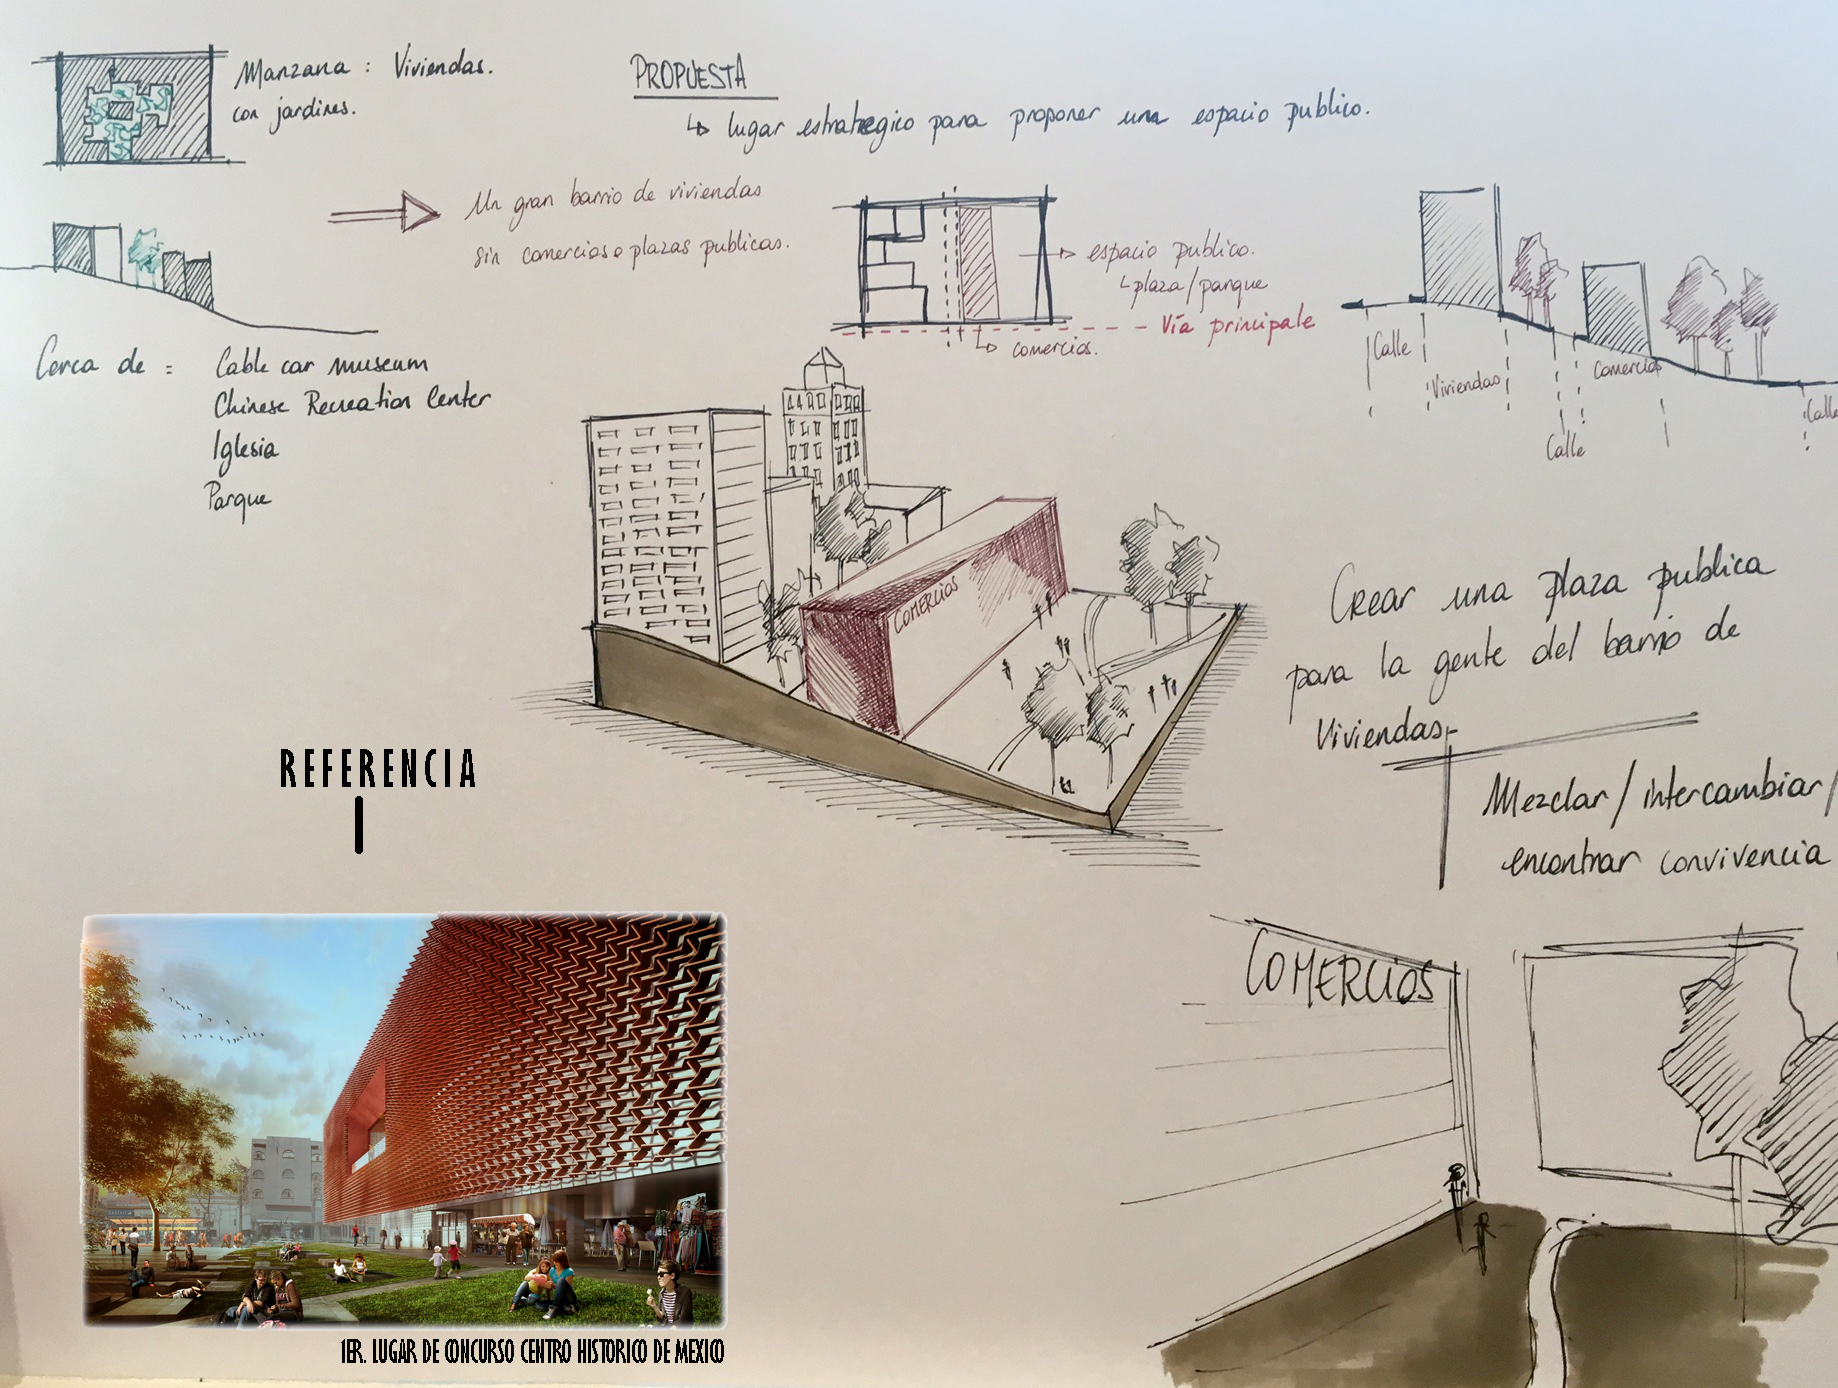 Manzana : Viviendas.
con jardines.
PROPUESTA
↳ lugar estrategico para proponer una espacio publico.
Un gran barrio de viviendas
sin comercios o plazas publicas.
espacio publico.
↳ plaza/parque
Vía principale
↳ comercios.
Calle
Viviendas
Calle
Comercios
Calle
Cerca de : Cable car museum
Chinese Recreation Center
Iglesia
Parque
COMERCIOS
Crear una plaza publica
para la gente del barrio de
Viviendas
Mezclar / intercambiar /
encontrar convivencia
REFERENCIA
COMERCIOS
1ER. LUGAR DE CONCURSO CENTRO HISTORICO DE MEXICO